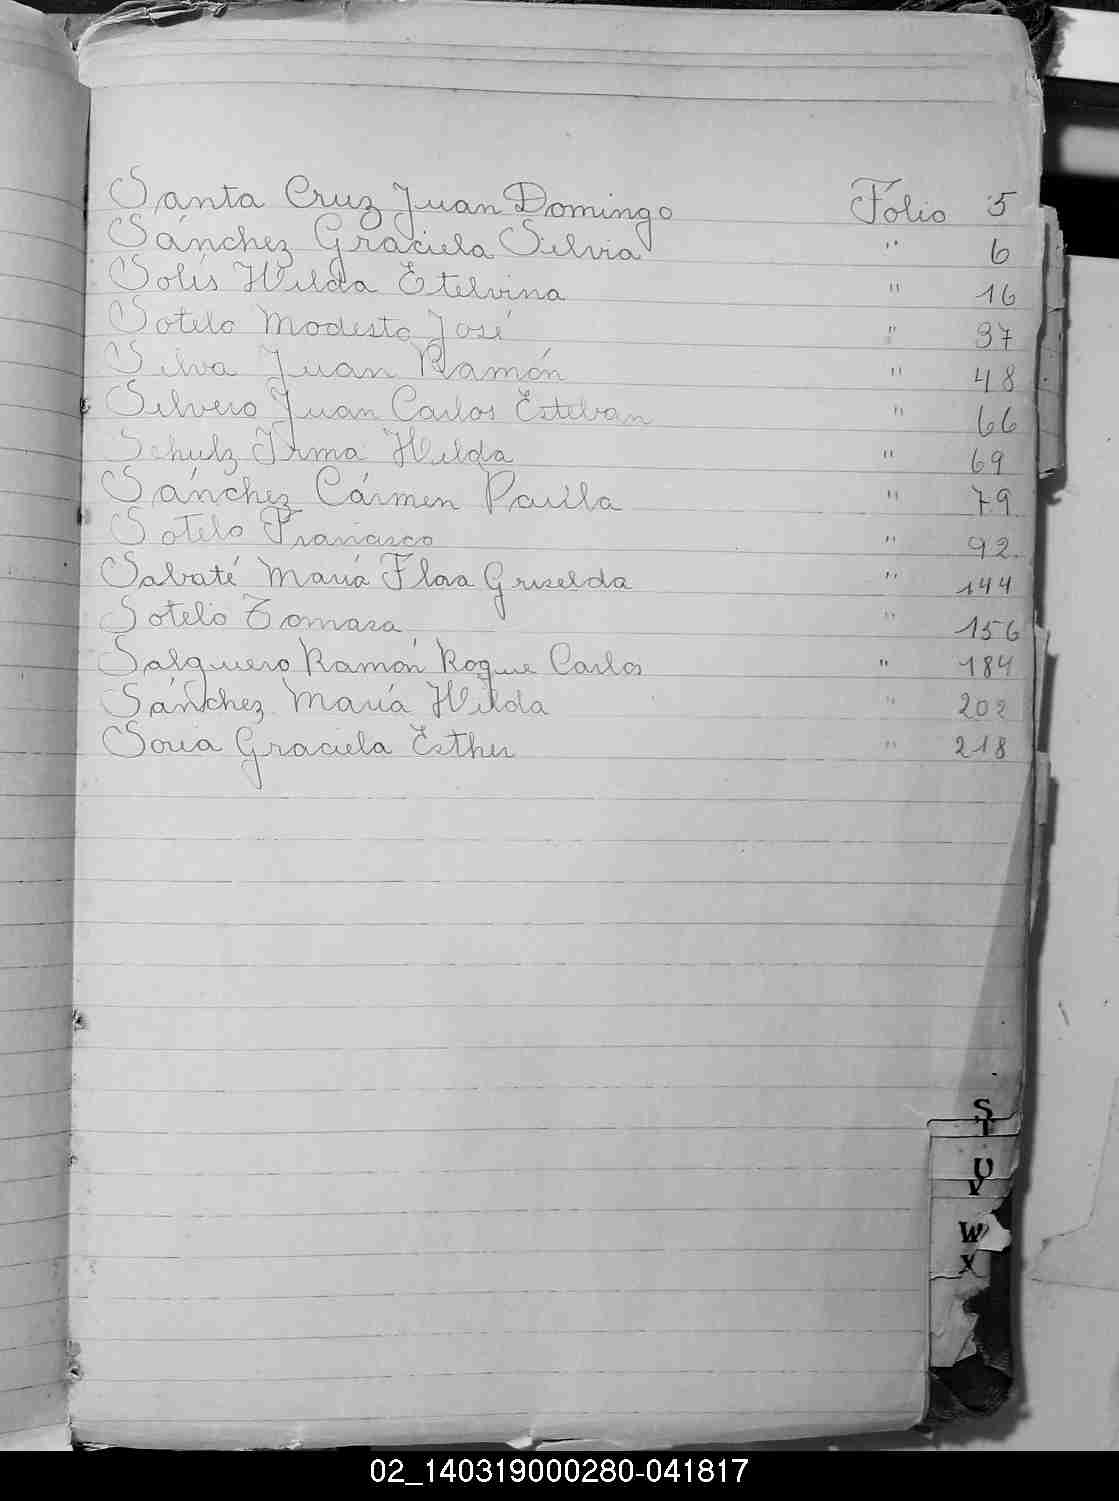 Santa Cruz Juan Domingo Folio 5
Sánchez Graciela Silvia " 6
Solís Hilda Etelvina " 16
Sotelo Modesto José " 37
Silva Juan Ramón " 48
Silvero Juan Carlos Esteban " 66
Schulz Irma Hilda " 69
Sánchez Cármen Paula " 79
Sotelo Francisco " 92
Sabaté María Flora Griselda " 144
Sotelo Tomasa " 156
Salguero Ramón Roque Carlos " 184
Sánchez María Hilda " 202
Soria Graciela Esther " 218
S
T
U
V
W
X
02_140319000280-041817